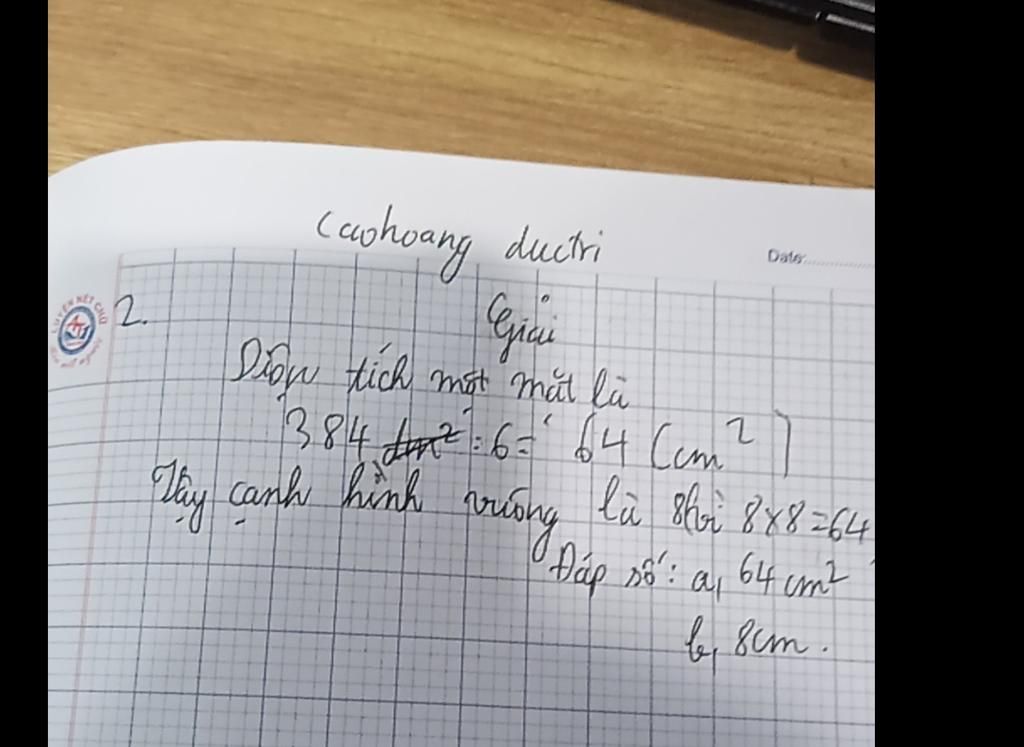 Caohoang ductri
Date:
2.
Giải
Diện tích một mặt là
384 dm² : 6 = 64 (cm²)
Vậy cạnh hình vuông là 8 vì 8x8=64
Đáp số: a, 64 cm²
b, 8cm.
LUYỆN NÉT CHỮ